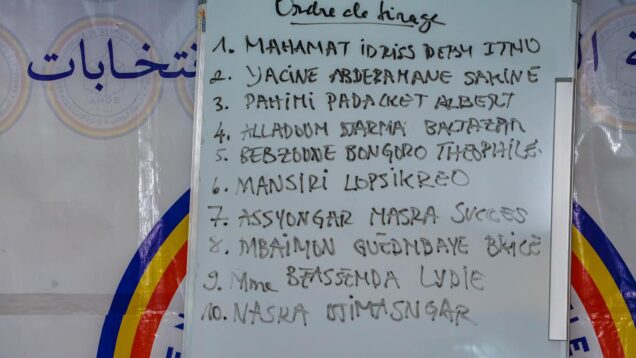 Ordre de tirage
1. MAHAMAT IDRISS DEBY ITNO
2. YACINE ABDERAMANE SAKINE
3. PAHIMI PADACKET ALBERT
4. ALLADOUM DJARMA BALTAZAR
5. BEBZOUNE BONGORO THEOPHILE
6. MANSIRI LOPSIKREO
7. ASSYONGAR MASRA SUCCES
8. MBAIMON GUEDMBAYE BRICE
9. Mme BEASSEMDA LYDIE
10. NASRA DJIMASNGAR
نتخابات
ANGE